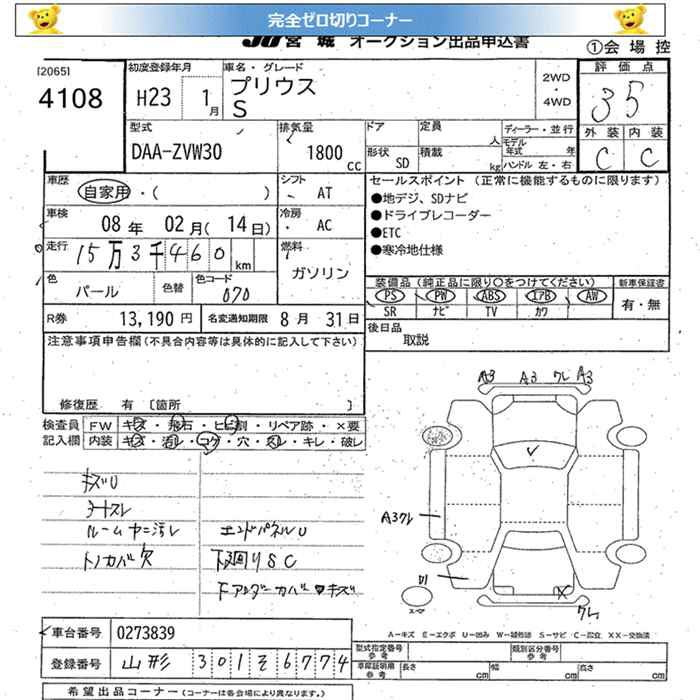 完全ゼロ切りコーナー
JU宮城 オークション出品申込書
①会場控
[2065]
4108
初度登録年月
H23 1月
車名・グレード
プリウス
S
2WD
・
4WD
評価点
35
外装 内装
C C
型式
DAA-ZVW30
排気量
1800 CC
ドア 定員 人
形状 SD 積載 kg
ディーラー・並行
モデル年式 年
ハンドル 左・右
車歴
自家用・( )
シフト AT
車検 08年 02月(14日)
冷房 AC
走行 15万3千460km
燃料 ガソリン
色 パール 色替 色コード 070
R券 13,190円 名変通知期限 8月 31日
セールスポイント (正常に機能するものに限ります)
●地デジ、SDナビ
●ドライブレコーダー
●ETC
●寒冷地仕様
装備品(純正品に限り○をつけてください) 新車保証書
PS PW ABS エアB AW 有・無
SR ナビ TV カワ
後日品 取説
注意事項申告欄(不具合内容等は具体的に記入して下さい)
修復歴 有 [箇所 ]
検査員記入欄
FW キズ・飛石・ヒビ割・リペア跡・×要
内装 キズ・汚レ・コゲ・穴・スレ・キレ・破レ
キズU
シートスレ
ルームヤニ汚レ エンドパネルU
トノカバー欠 下廻りSC
下アンダーカバーキズ
A3 A3 クレ A3
A3クレ
クレ
A-キズ E-エクボ U-凹み W-補修跡 S-サビ C-腐立 XX-交換済
車台番号 0273839
登録番号 山形 301そ6774
型式指定番号 参考 類別区分番号 参考
車庫証明用 参考 長さ cm 幅 cm 高さ cm
希望出品コーナー(コーナーは各会場により異なります。)